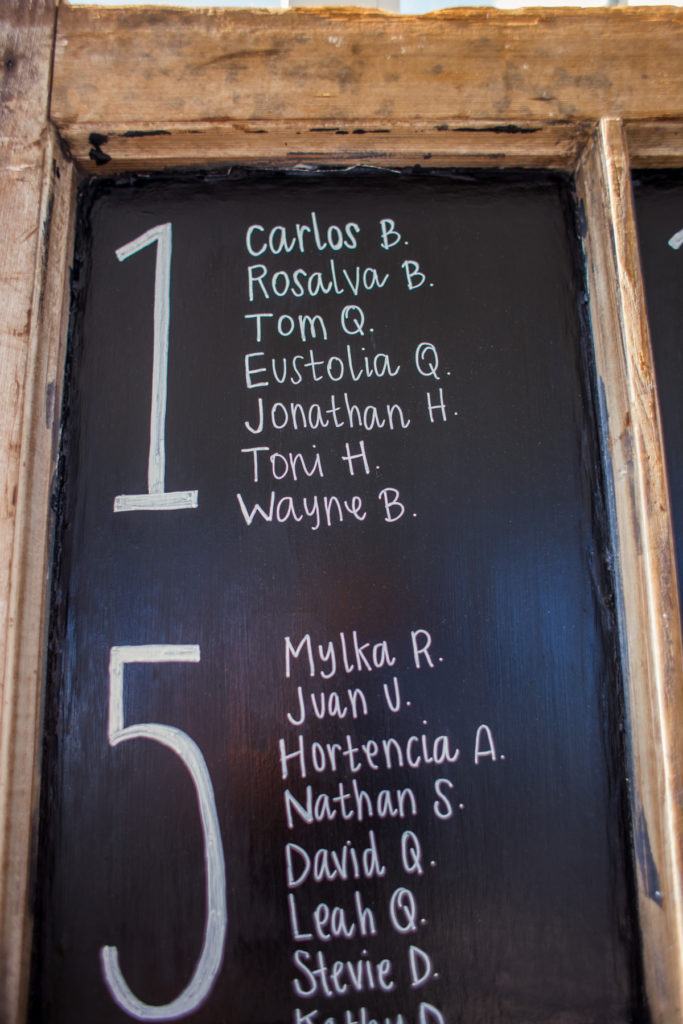 1
Carlos B.
Rosalva B.
Tom Q.
Eustolia Q.
Jonathan H.
Toni H.
Wayne B.
5
Mylka R.
Juan U.
Hortencia A.
Nathan S.
David Q.
Leah Q.
Stevie D.
Kathy D